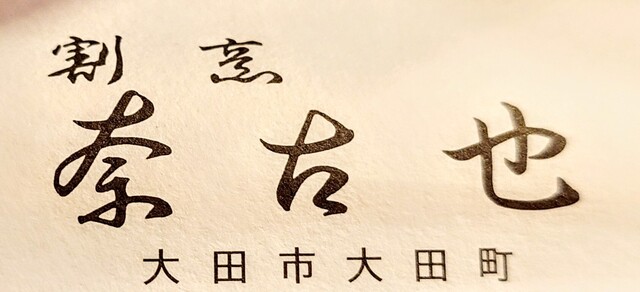 割烹
奈古也
大田市大田町